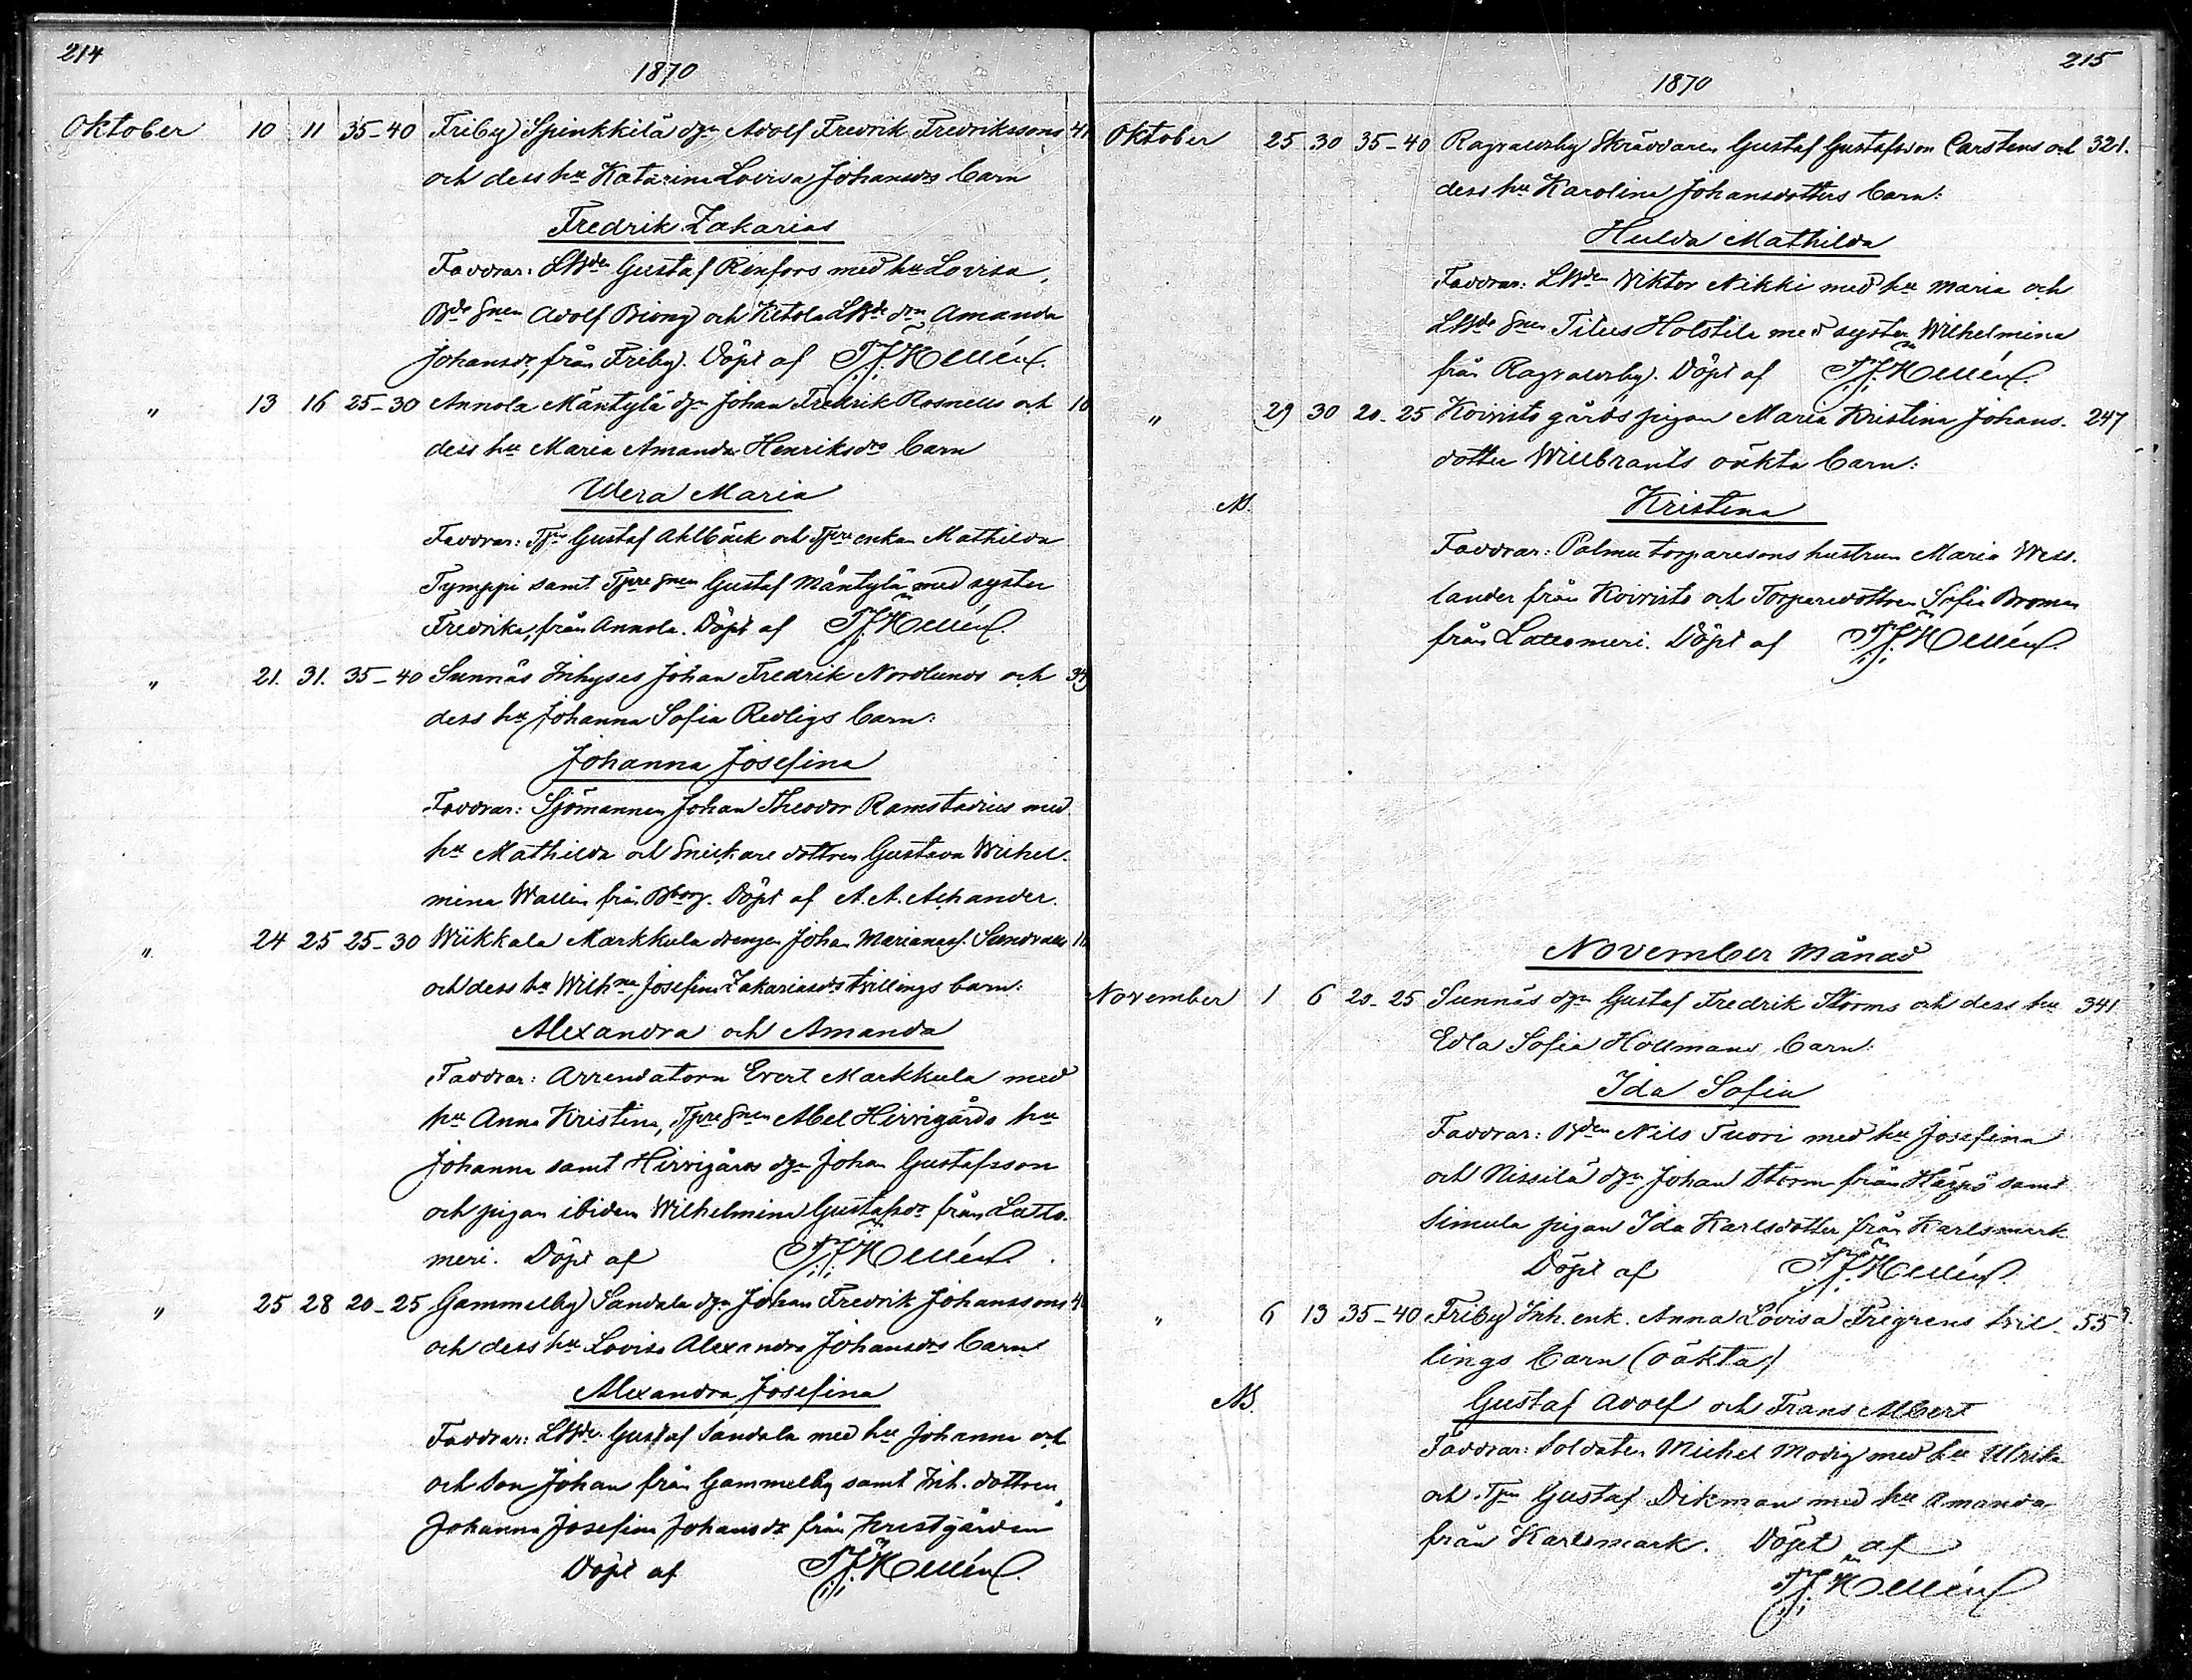 214
1870
Oktober 10 11 35-40 Friby Spinkkilä dgn Adolf Fredrik Fredrikssons 41
och dess hu Katarina Lovisa Johansdrs barn
Fredrik Zakarias
Faddrar: LBden Gustaf Renfors med hu Lovisa,
Bde Snen Adolf Bring och Ketola LBde drn Amanda
Johansdr, från Friby. Döpt af F. J. Hellén.
" 13 16 25-30 Annola Mäntylä dgn Johan Fredrik Rosnells och 10
dess hu Maria Amanda Henriksdrs barn
Wera Maria
Faddrar: Tpn Gustaf Ahlbäck och Tpre enkan Mathilda
Tymppi samt Tpre Snen Gustaf Mäntylä med syster
Fredrika, från Annola. Döpt af F. J. Hellén.
" 21. 31. 35-40 Sunnäs Inhyses Johan Fredrik Nordlunds och 34
dess hu Johanna Sofia Redligs barn:
Johanna Josefina
Faddrar: Sjömannen Johan Theodor Ramstadius med
hu Mathilda och Snickare dottren Gustava Wilhel-
mina Wallin från Bborg. Döpt af A. A. Achander.
" 24 25 25-30 Wiikkala Markkula drengen Johan Marianus f. Sundvalls 11
och dess hu Wilhna Josefina Zakariasdrs tvillings barn:
Alexandra och Amanda
Faddrar: Arrendatorn Evert Markkula med
hu Anna Kristina, Tpre Snen Abel Hirvigårds hu
Johanna samt Hirvigårds dgn Johan Gustafsson
och pigan ibidem Wilhelmina Gustafsdr från Latto-
meri. Döpt af F. J. Hellén.
" 25 28 20-25 Gammelby Sandala dgn Johan Fredrik Johanssons 4
och dess hu Lovisa Alexandra Johansdrs barn
Alexandra Josefina
Faddrar: LBde Gustaf Sandala med hu Johanna och
och son Johan från Gammelby samt Inh. dottren
Johanna Josefina Johansdr från Kvistgården
Döpt af F. J. Hellén.
215
1870
Oktober 25 30 35-40 Ragvaldsby Skräddaren Gustaf Gustafsson Carstens och 321.
dess hu Karolina Johansdotters barn:
Hulda Mathilda
Faddrar: LBden Viktor Nikki med hu Maria och
LBde Snen Titus Holstila med syster Wilhelmina
från Ragvaldsby. Döpt af F. J. Hellén.
" 29 30 20-25 Koivisto gårds pigan Maria Kristina Johans- 247
dotter Willbrants oäkta barn:
NB. Kristina
Faddrar: Palmu torparesons hustrun Maria Wess-
lander från Koivisto och Torparedottren Sofia Broman
från Lattomeri. Döpt af F. J. Hellén.
November Månad
November 1 6 20-25 Sunnäs dgn Gustaf Fredrik Storms och dess hu 341
Edla Sofia Hollmans barn:
Ida Sofia
Faddrar: Bden Nils Tuori med hu Josefina
och Nissilä dgn Johan Storm från Härpö samt
Simula pigan Ida Karlsdotter från Karlsmark
Döpt af F. J. Hellén.
" 6 13 35-40 Friby Inh. enk. Anna Lovisa Frigrens tvil- 55
lings barn (oäkta)
NB. Gustaf Adolf och Frans Albert
Faddrar: Soldaten Michel Modig med hu Ulrika
och Tpn Gustaf Dikman med hu Amanda
från Karlsmark. Döpt af
F. J. Hellén